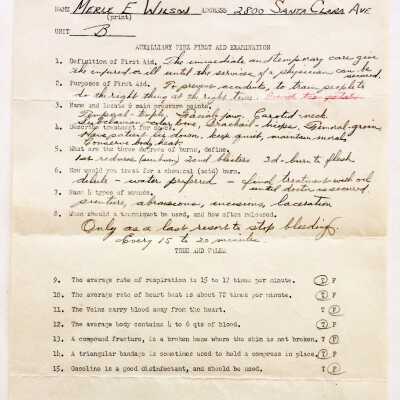 NAME MERLE E WILSON ADDRESS 2800 SANTA CLARA AVE
(print)
UNIT B
AUXILIARY FIRE FIRST AID EXAMINATION
1. Definition of First Aid. The immediate and temporary care given
the injured or ill until the services of a physician can be
secured
2. Purposes of First Aid. To prevent accidents, to train people to
do the right thing at the right time.
3. Name and locate 6 main pressure points.
Temporal - temple, Facial - jaw, Carotid - neck
Subclavian - , Brachial - biceps, Femoral - groin
4. Describe treatment for shock.
Have patient lie down, keep quiet, maintain morale,
Conserve body heat.
5. What are the three degrees of burns, define.
1st redness (sunburn) 2nd blisters 3d - burn to flesh
6. How would you treat for a chemical (acid) burn.
dilute - water preferred - treatment with oil
until doctor is secured
7. Name 4 types of wounds.
puncture, abrasions, incisions, laceration
8. When should a tourniquet be used, and how often released.
Only as a last resort to stop bleeding.
Every 15 to 20 minutes.
TRUE AND FALSE
9. The average rate of respiration is 15 to 17 times per minute. T F
10. The average rate of heart beat is about 72 times per minute. T F
11. The Veins carry blood away from the heart. T F
12. The average body contains 4 to 6 qts of blood. T F
13. A compound fracture, is a broken bone where the skin is not broken. T F
14. A triangular bandage is sometimes used to hold a compress in place. T F
15. Gasoline is a good disinfectant, and should be used. T F